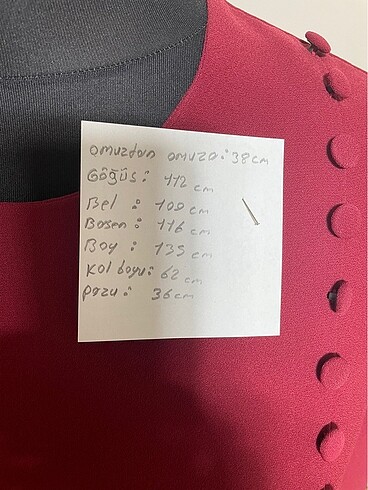 omuzdan omuza: 38 cm
Göğüs: 112 cm
Bel : 100 cm
Basen : 116 cm
Boy : 135 cm
Kol boyu: 62 cm
pazu : 36 cm